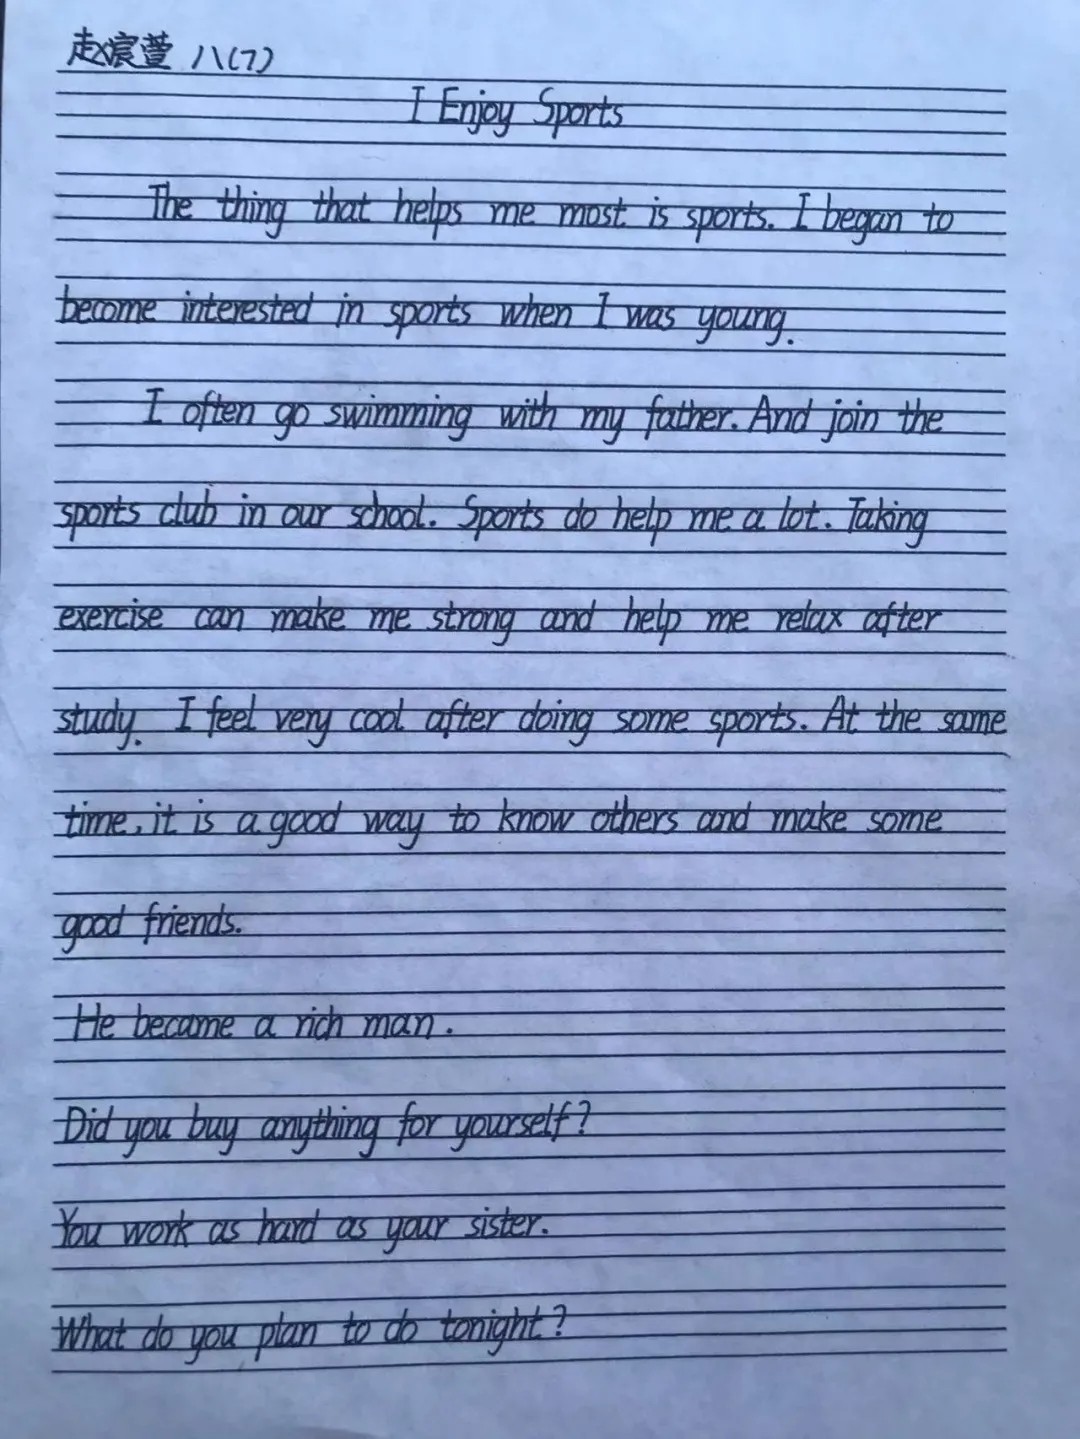 赵宸萱 八(7)
I Enjoy Sports
The thing that helps me most is sports. I began to
become interested in sports when I was young.
I often go swimming with my father. And join the
sports club in our school. Sports do help me a lot. Taking
exercise can make me strong and help me relax after
study. I feel very cool after doing some sports. At the same
time, it is a good way to know others and make some
good friends.
He became a rich man.
Did you buy anything for yourself?
You work as hard as your sister.
What do you plan to do tonight?